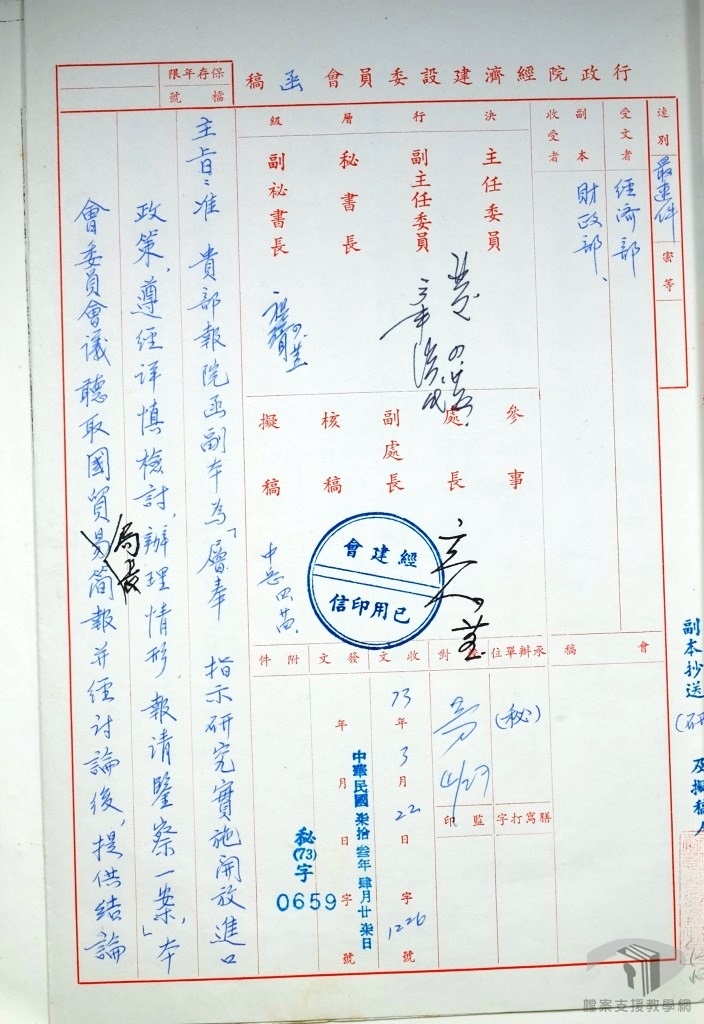 行政院經濟建設委員會函稿
速別
最速件
密等
受文者
經濟部
副本
收受者
財政部、
決行層級
主任委員
副主任委員
秘書長
副秘書長
參事
處長
副處長
核稿
擬稿
經建會
已用印信
會稿
承辦單位
(秘)
繕寫打字
校對
4/27
監印
收文
73年3月22日
字1226號
發文
年月日
字號
中華民國柒拾叁年肆月廿柒日
秘(73)字
0659
附件
保存年限
檔號
主旨:准 貴部報院函副本為「層奉 指示研究實施開放進口
政策,遵經詳慎檢討,辦理情形,報請鑒察一案,」本
會委員會議聽取國貿局長簡報并經討論後,提供結論
副本抄送
(研
及擬稿人
檔案支援教學網